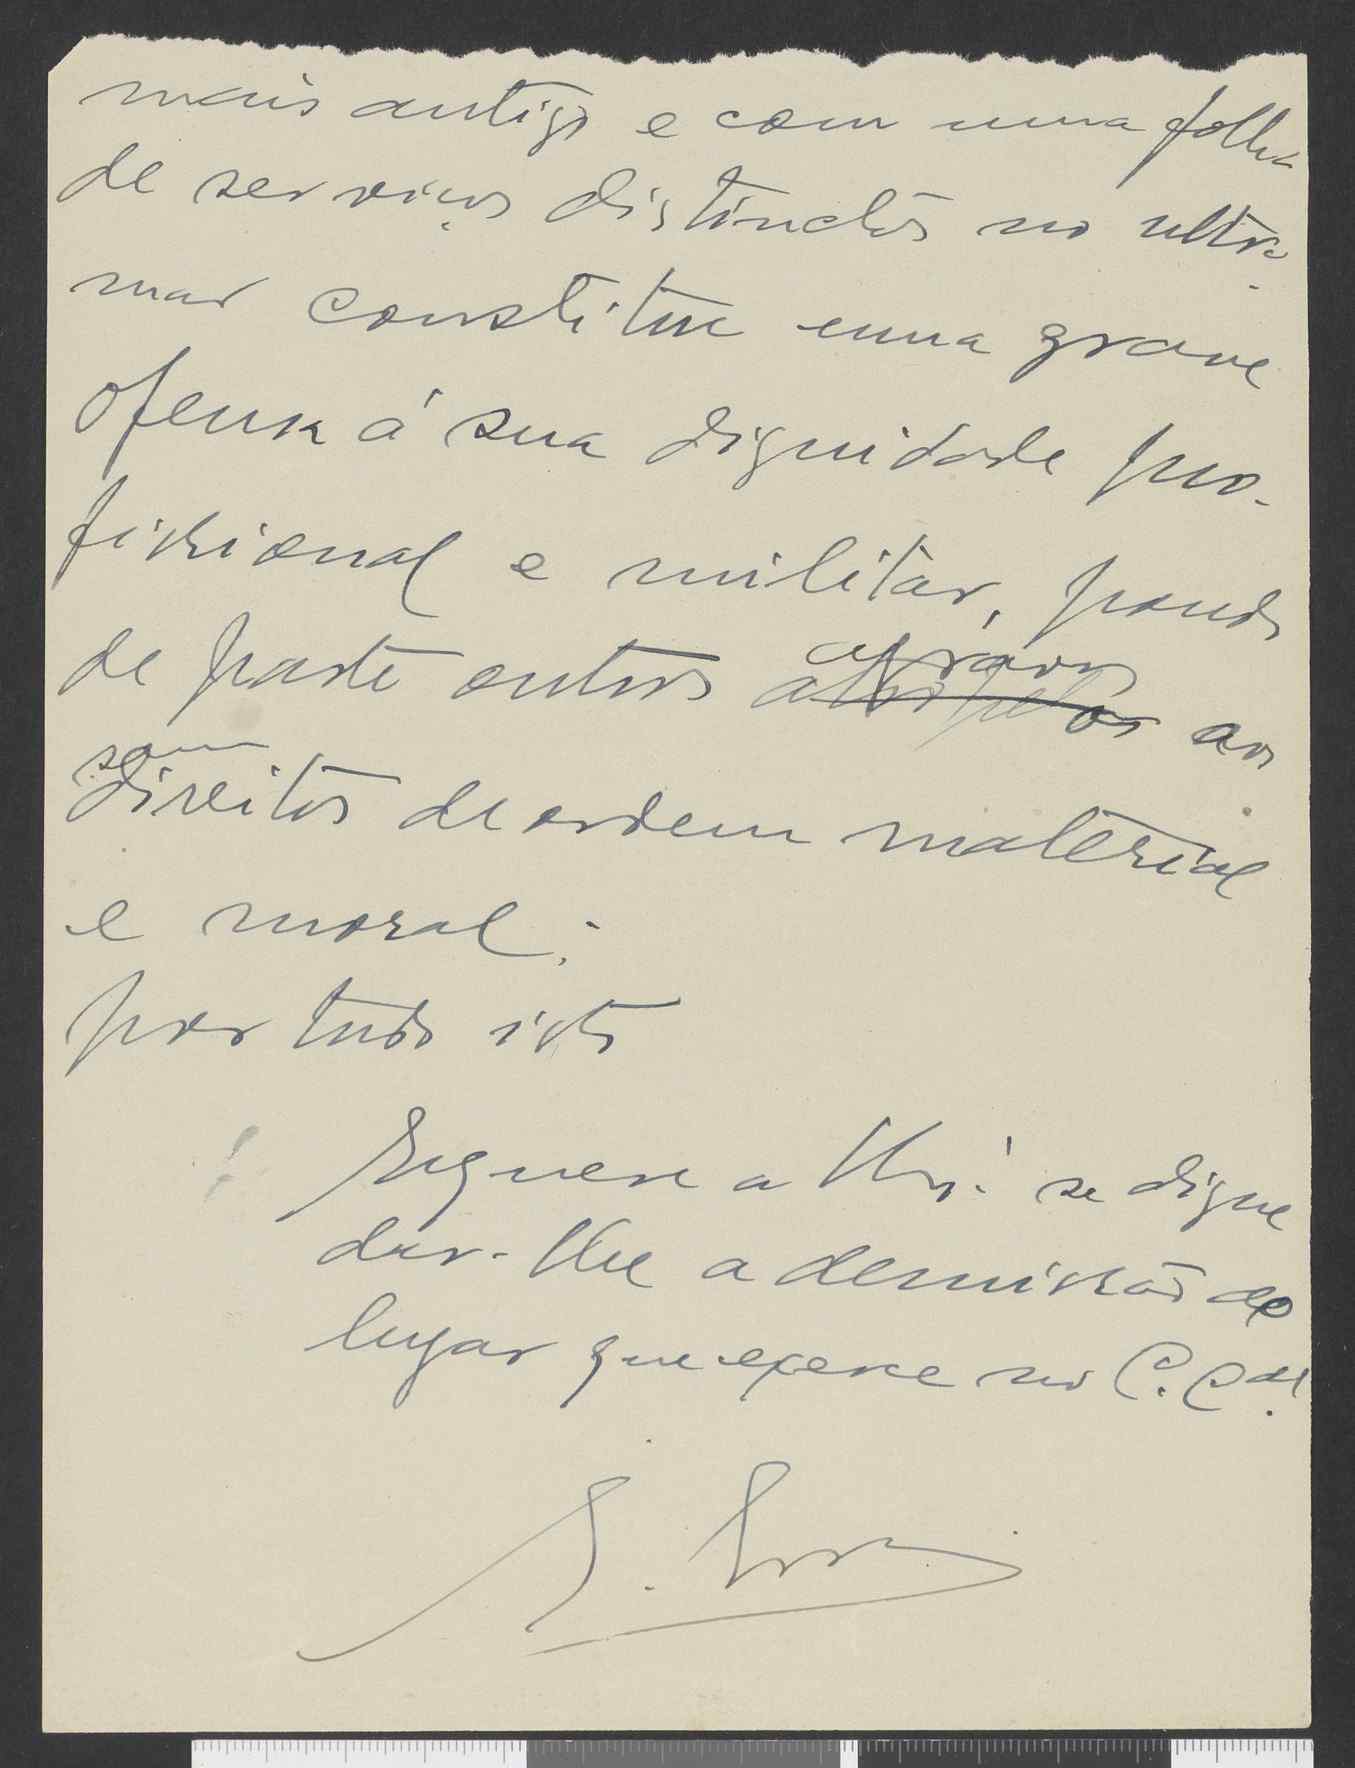 mais antigo e com uma folha
de serviços distinctos no ultra-
mar constitue uma grave
ofensa á sua dignidade pro-
fissional e militar, pondo
de parte outros agravos
atropelos aos
seus
direitos de ordem material
e moral;
por tudo isto
Requere a V. Ex.ª se digne
dar-lhe a demissão do
lugar que exerce no C. C.